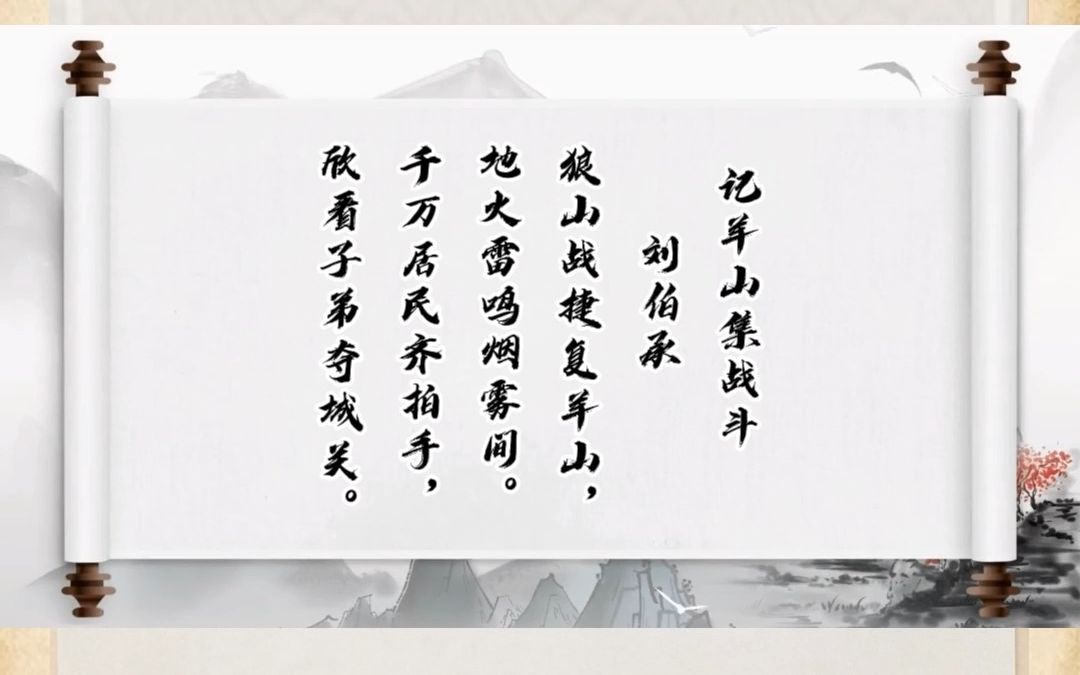 记羊山集战斗
刘伯承
狼山战捷复羊山，
地火雷鸣烟雾间。
千万居民齐拍手，
欣看子弟夺城关。